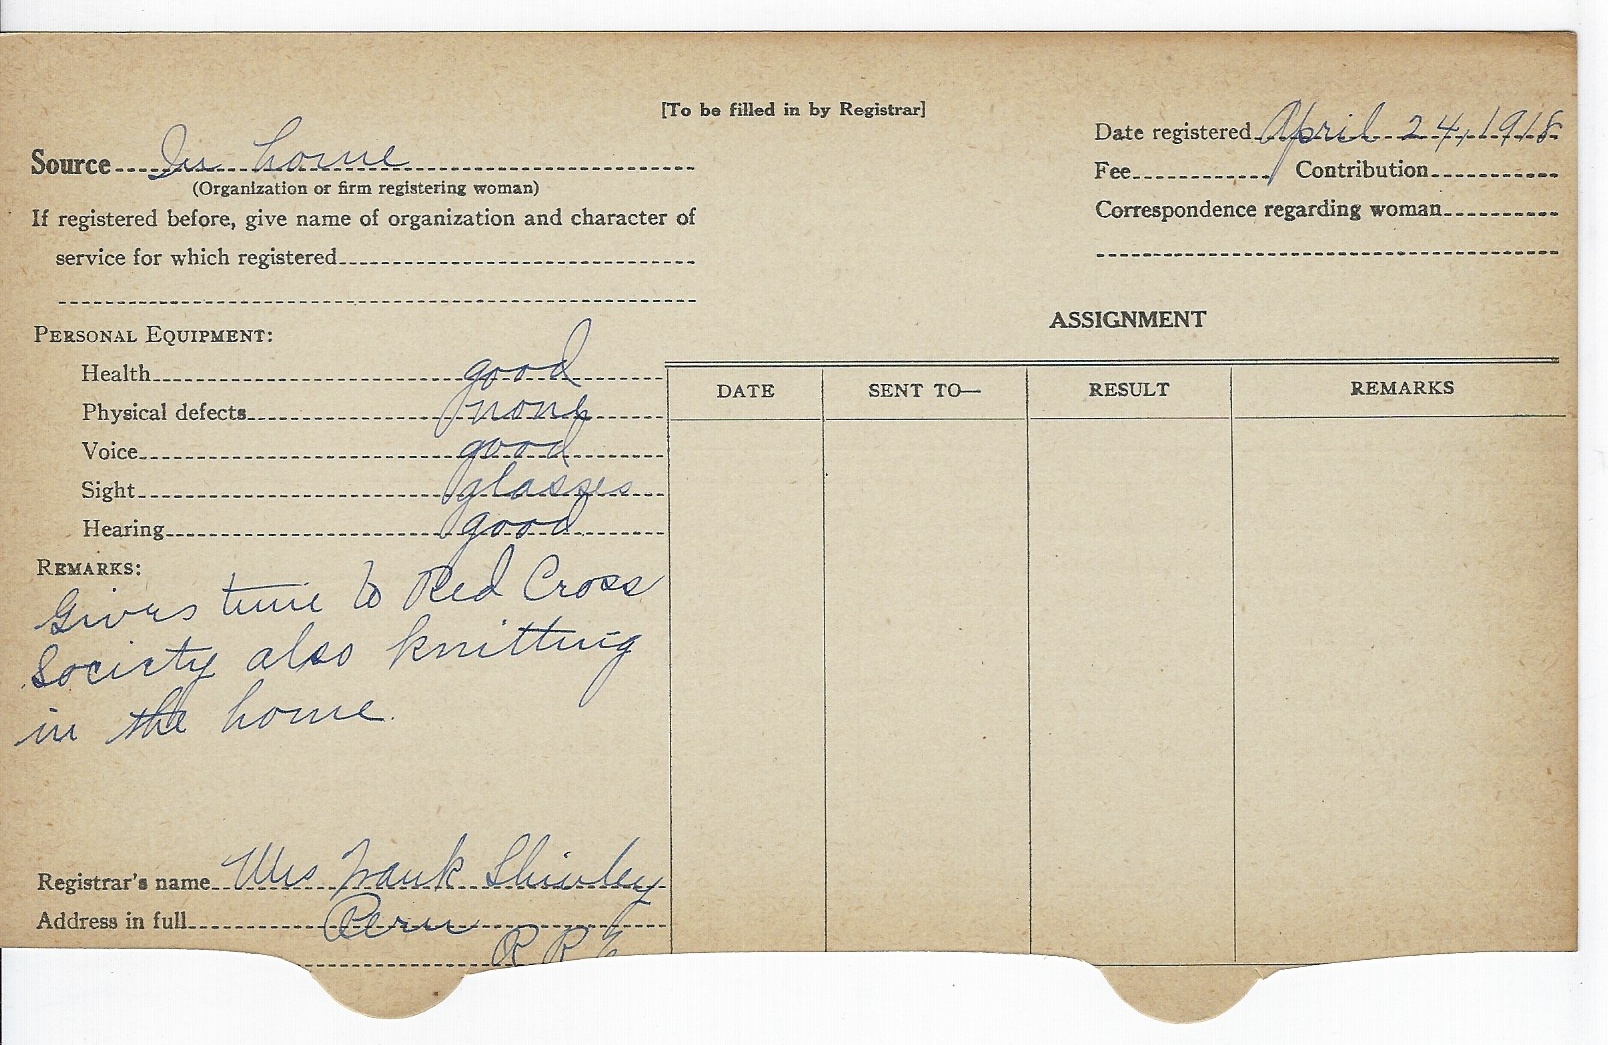 [To be filled in by Registrar]
Source In home
(Organization or firm registering woman)
If registered before, give name of organization and character of
service for which registered
Date registered April 24, 1918
Fee Contribution
Correspondence regarding woman
PERSONAL EQUIPMENT:
Health good
Physical defects none
Voice good
Sight glasses
Hearing good
REMARKS:
Gives time to Red Cross
Society also knitting
in the home.
Registrar's name Mrs Frank Shivley
Address in full Peru
R R
ASSIGNMENT
DATE SENT TO— RESULT REMARKS